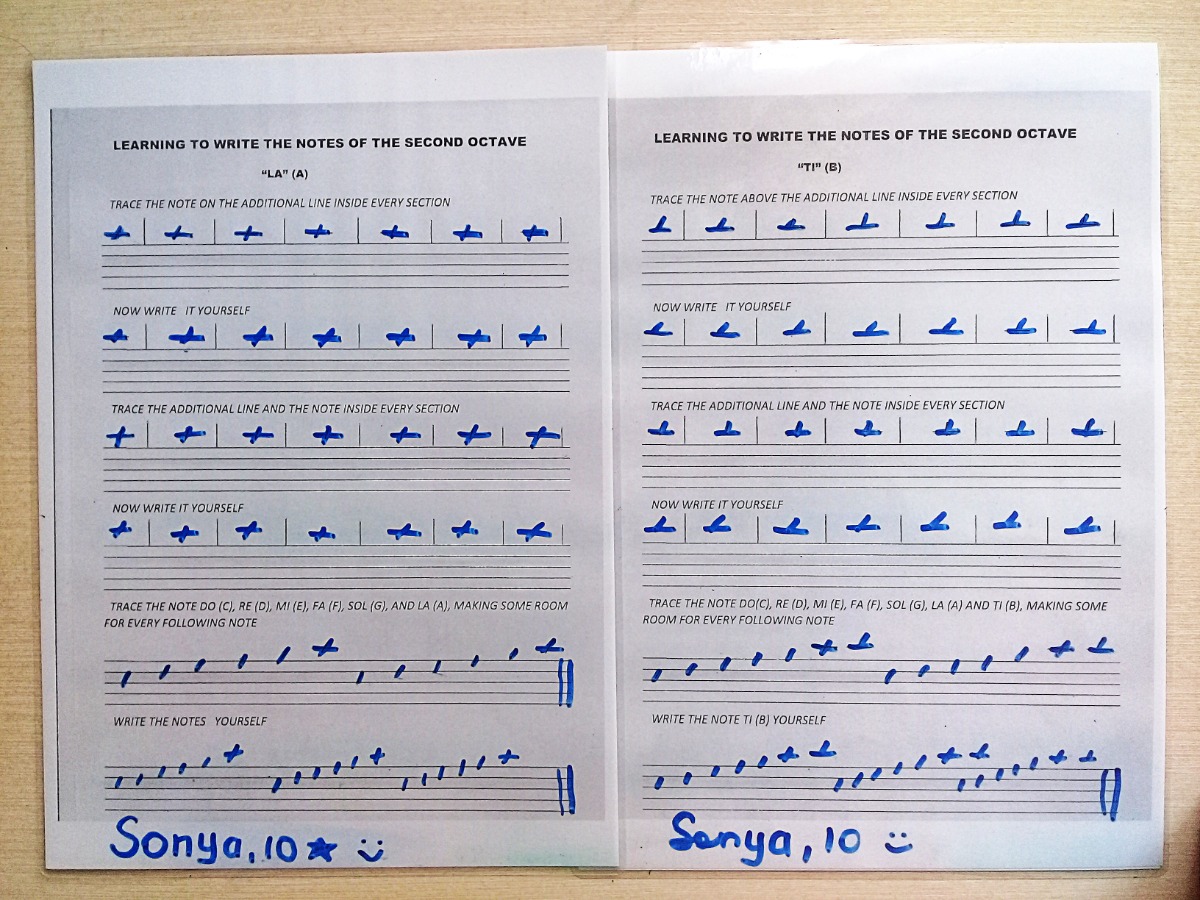 LEARNING TO WRITE THE NOTES OF THE SECOND OCTAVE
“LA” (A)
TRACE THE NOTE ON THE ADDITIONAL LINE INSIDE EVERY SECTION
NOW WRITE IT YOURSELF
TRACE THE ADDITIONAL LINE AND THE NOTE INSIDE EVERY SECTION
NOW WRITE IT YOURSELF
TRACE THE NOTE DO (C), RE (D), MI (E), FA (F), SOL (G), AND LA (A), MAKING SOME ROOM
FOR EVERY FOLLOWING NOTE
WRITE THE NOTES YOURSELF
Sonya, 10
LEARNING TO WRITE THE NOTES OF THE SECOND OCTAVE
“TI” (B)
TRACE THE NOTE ABOVE THE ADDITIONAL LINE INSIDE EVERY SECTION
NOW WRITE IT YOURSELF
TRACE THE ADDITIONAL LINE AND THE NOTE INSIDE EVERY SECTION
NOW WRITE IT YOURSELF
TRACE THE NOTE DO(C), RE (D), MI (E), FA (F), SOL (G), LA (A) AND TI (B), MAKING SOME
ROOM FOR EVERY FOLLOWING NOTE
WRITE THE NOTE TI (B) YOURSELF
Sonya, 10